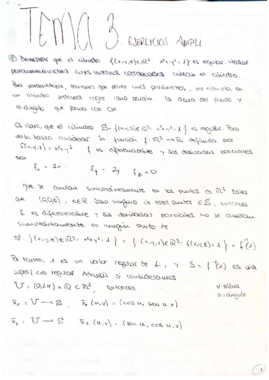 TEMA 3
EJERCICIOS AMPLI
① Demostrar que el cilindro {(x,y,z)∈ℝ³: x²+y²=1} es regular. Hallar
parametrizaciones cuyas imágenes coordenadas cubran el cilindro.
Para parametrizar, tenemos que poner unos parámetros, por ejemplo, en
un cilindro podemos coger como la altura del punto y
el ángulo que forma con OX.
Es claro que el cilindro S={(x,y,z)∈ℝ³: x²+y²=1} es regular. Para
verlo, basta considerar la función f: ℝ³→ℝ definida por
f(x,y,z)=x²+y². f es diferenciable y sus derivadas parciales
son
fx = 2x fy = 2y fz = 0
que se anulan simultáneamente en los puntos de ℝ³ tales
que (0,0,z), z∈ℝ. Como ninguno de estos puntos ∈ S, entonces
f es diferenciable y sus derivadas parciales no se anulan
simultáneamente en ningún punto de
S = {(x,y,z)∈ℝ³: x²+y²=1} = {(x,y,z)∈ℝ³: f(x,y,z)=1} = f⁻¹(1)
Por tanto, 1 es un valor regular de f, y S=f⁻¹(1) es una
superficie regular. Además si consideramos
U = (0,2π) × ℝ ⊂ ℝ², entonces
v = altura
u = ángulo
x₁: U → S, x₁(u,v) = (cos u, sen u, v)
x₂: U → S x₂(u,v) = (sen u, cos u, v)
1